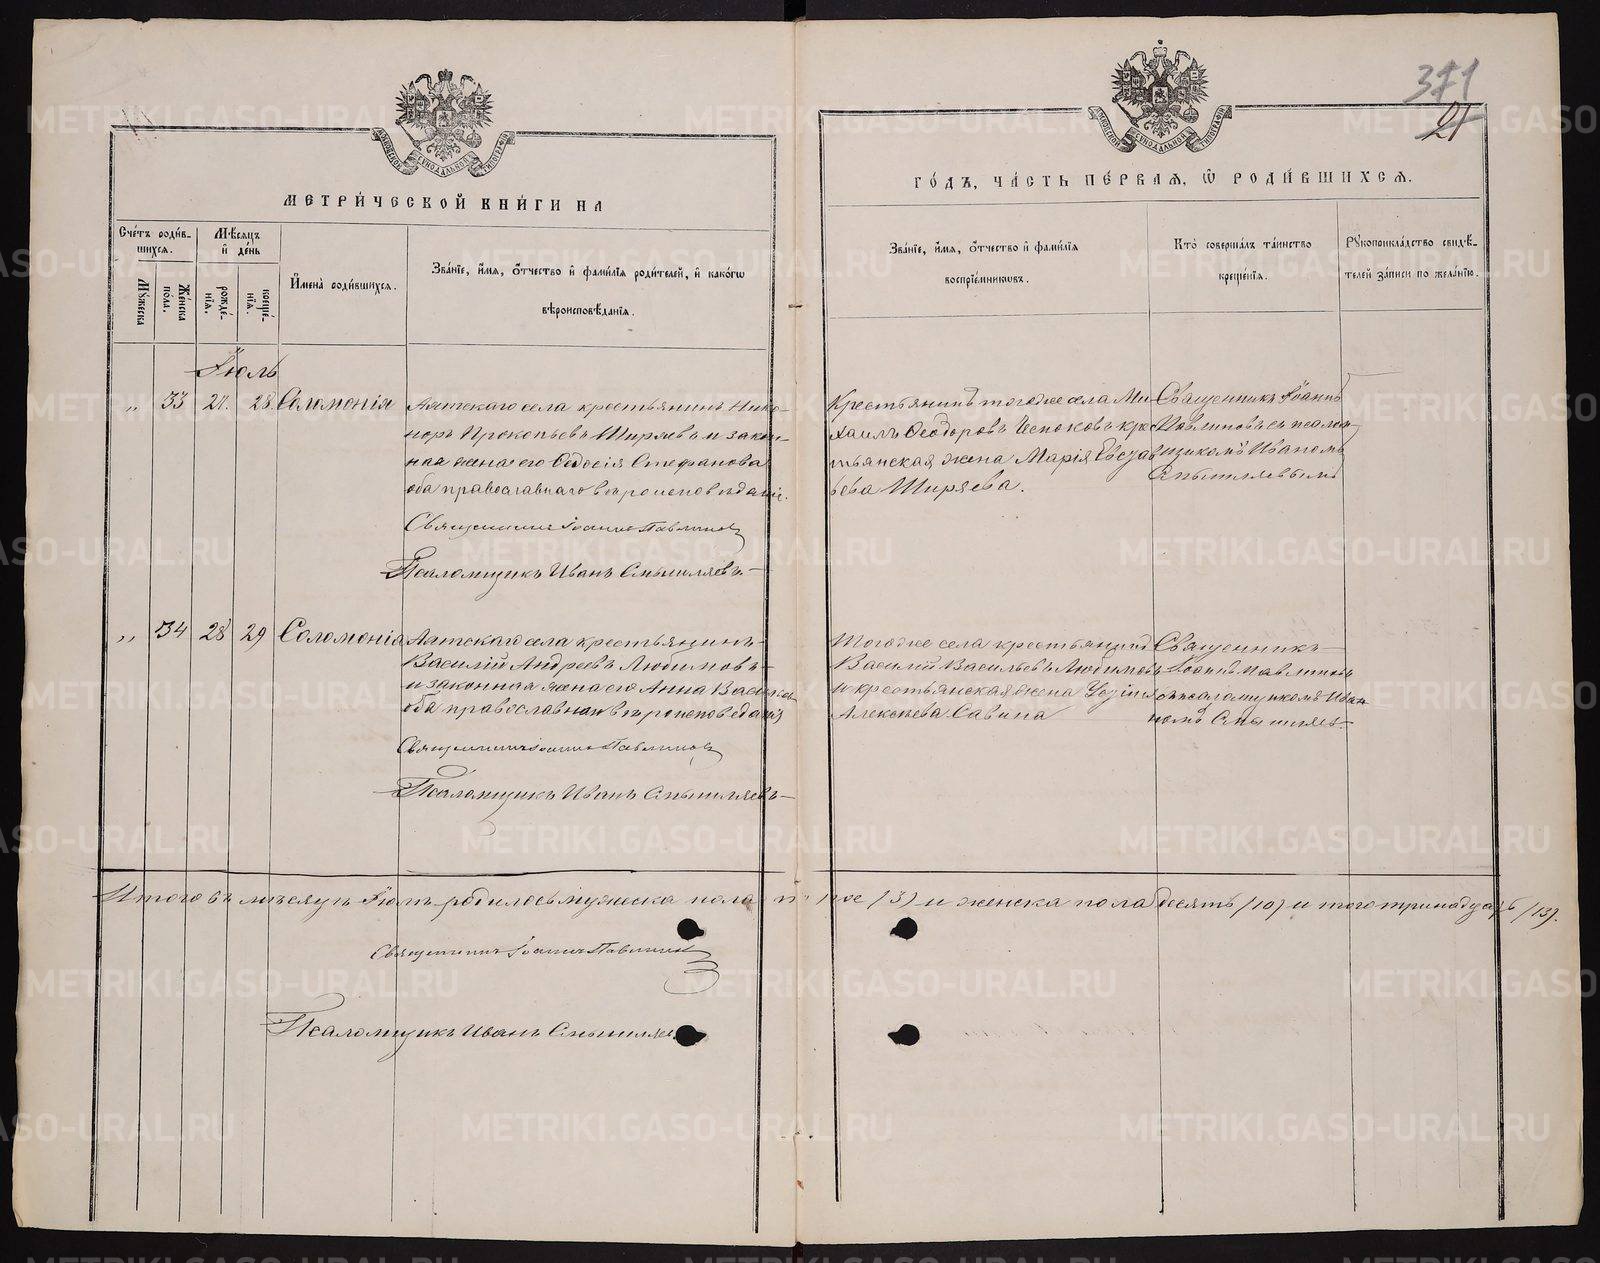 371
21
МЕТРИ́ЧЕСКОЙ КНИ́ГИ НА
ГО́ДЪ, ЧА́СТЬ ПЕ́РВАЯ, Ѽ РОДИ́ВШИХСЯ.
Сче́тъ роди́в-
шихся.
Мꙋ́жеска
Же́нска
по́ла.
Мѣ́сяцъ
и҆ де́нь
рожде́-
нїя.
креще́-
нїя.
И҆мена̀ роди́вшихся.
Зва́нїе, и҆́мя, ѻ҆́тчество и҆ фами́лїя роди́телей, и҆ како́гѡ
вѣроисповѣ́данїя.
Зва́нїе, и҆́мя, ѻ҆́тчество и҆ фами́лїя
воспрїе́мникѡвъ.
Кто̀ соверша́лъ та́инство
креще́нїя.
Рꙋкоприкла́дство свидѣ́-
телей за́писи по жела́нїю.
Іюль
" 33 27. 28. Соломонія
Аятскаго села крестьянинъ Нико-
норъ Прокопьевъ Ширяевъ и закон-
ная жена его Ѳедосія Стефанова
оба православнаго вѣроисповѣданія.
Священникъ Іоаннъ Павлиновъ
Псаломщикъ Иванъ
Крестьянинъ тогоже села Ми-
хаилъ Ѳеодоровъ кре-
стьянская жена Марія
Ширяева.
Священникъ Іоаннъ
Павлиновъ съ псалом-
щикомъ Иваномъ
" 34 28 29 Соломонія
Аятскаго села крестьянинъ
Василій Андреевъ Любимовъ
и законная жена его Анна
оба православнаго вѣроисповеданія
Священникъ Іоаннъ Павлиновъ
Псаломщикъ Иванъ
Тогоже села крестьянинъ
Василій Васильевъ Любимовъ
и крестьянская жена
Алексѣева Савина
Священникъ
Іоаннъ Павлиновъ
съ псаломщикомъ Ива-
номъ
Итого въ мѣсяцѣ Іюлѣ родилось мужеска пола трое /3/ и женска пола десять /10/ итого тринадцать /13/.
Священникъ Іоаннъ Павлиновъ
Псаломщикъ Иванъ
METRIKI.GASO-URAL.RU